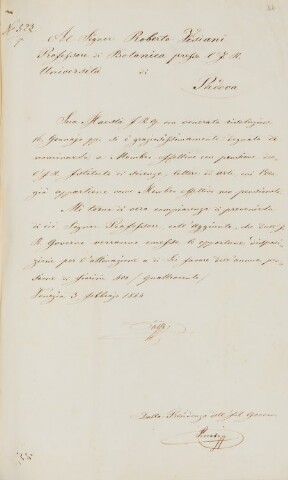 Al Signor Roberto Visiani
Professore di Botanica presso l'I. R.
Università di
Padova
Sua Maestà I. R. A. con venerata risoluzione
16 Gennajo pp. si è graziosissimamente degnata di
nominarla a Membro effettivo con pensione
I. R. Istituto di Scienze, Lettere ed Arti, cui Ella
già appartiene come Membro effettivo non pensionato.
Mi torna di vera compiacenza di prevenirla
di ciò Signor Professore coll'aggiunta, che dall'I.
R. Governo verranno emesse le opportune disposi-
zioni per l'attivazione a di Lei favore dell'annua pen-
sione di fiorini 400 (quattrocento)
Venezia 3 febbrajo 1844
Dalla Presidenza dell'